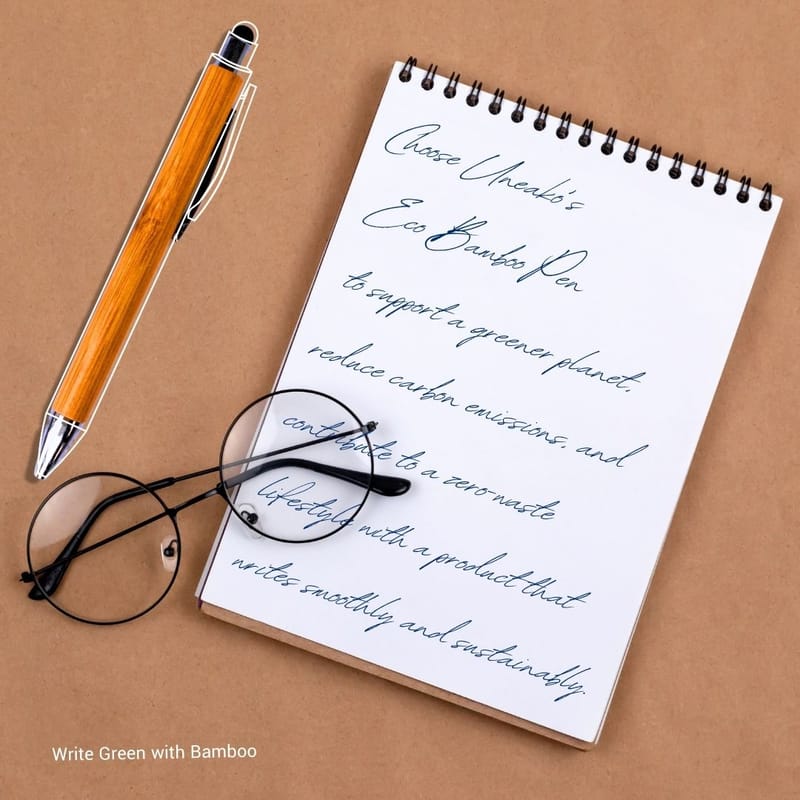 Choose Uneako's
Eco Bamboo Pen
to support a greener planet,
reduce carbon emissions, and
contribute to a zero-waste
lifestyle with a product that
writes smoothly and sustainably.
Write Green with Bamboo